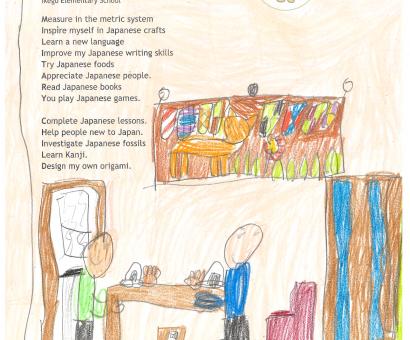 Ikego Elementary School
Measure in the metric system
Inspire myself in Japanese crafts
Learn a new language
Improve my Japanese writing skills
Try Japanese foods
Appreciate Japanese people.
Read Japanese books
You play Japanese games.
Complete Japanese lessons.
Help people new to Japan.
Investigate Japanese fossils
Learn Kanji.
Design my own origami.